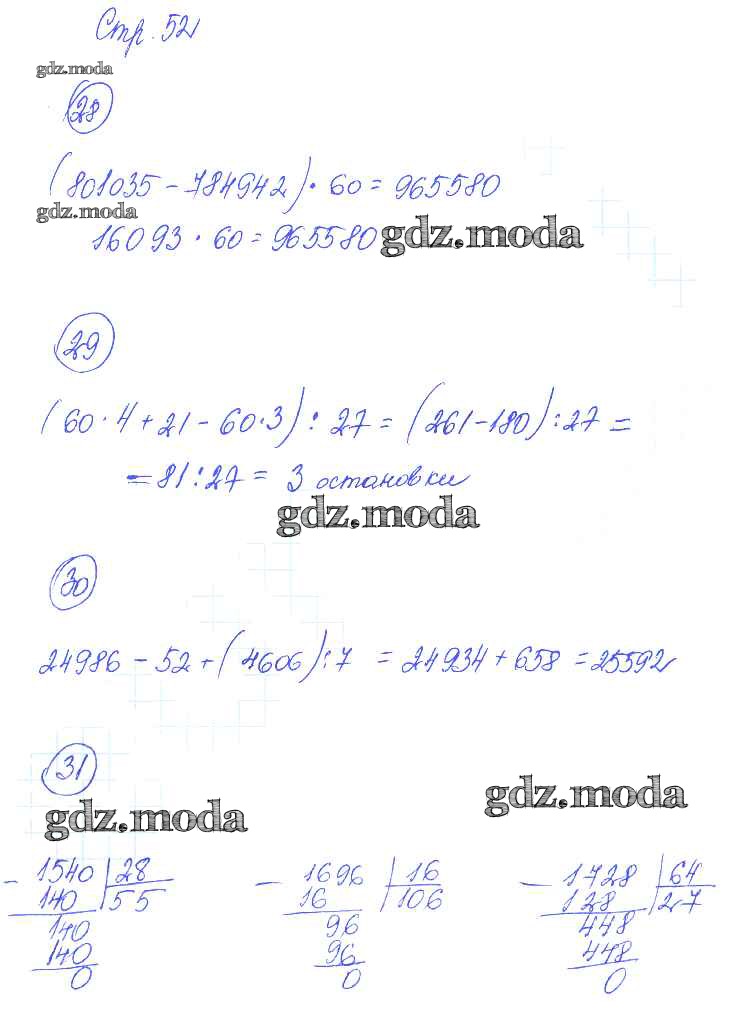 Стр. 52
gdz.moda
28
(801035 - 784942) · 60 = 965580
gdz.moda
16093 · 60 = 965580
gdz.moda
29
(60 · 4 + 21 - 60 · 3) : 27 = (261 - 180) : 27 =
= 81 : 27 = 3 остановки
gdz.moda
30
24986 - 52 + (4606) : 7 = 24934 + 658 = 25592
31
gdz.moda
gdz.moda
- 1540 | 28
140 | 55
140
140
0
- 1696 | 16
16 | 106
96
96
0
- 1728 | 64
128 | 27
448
448
0